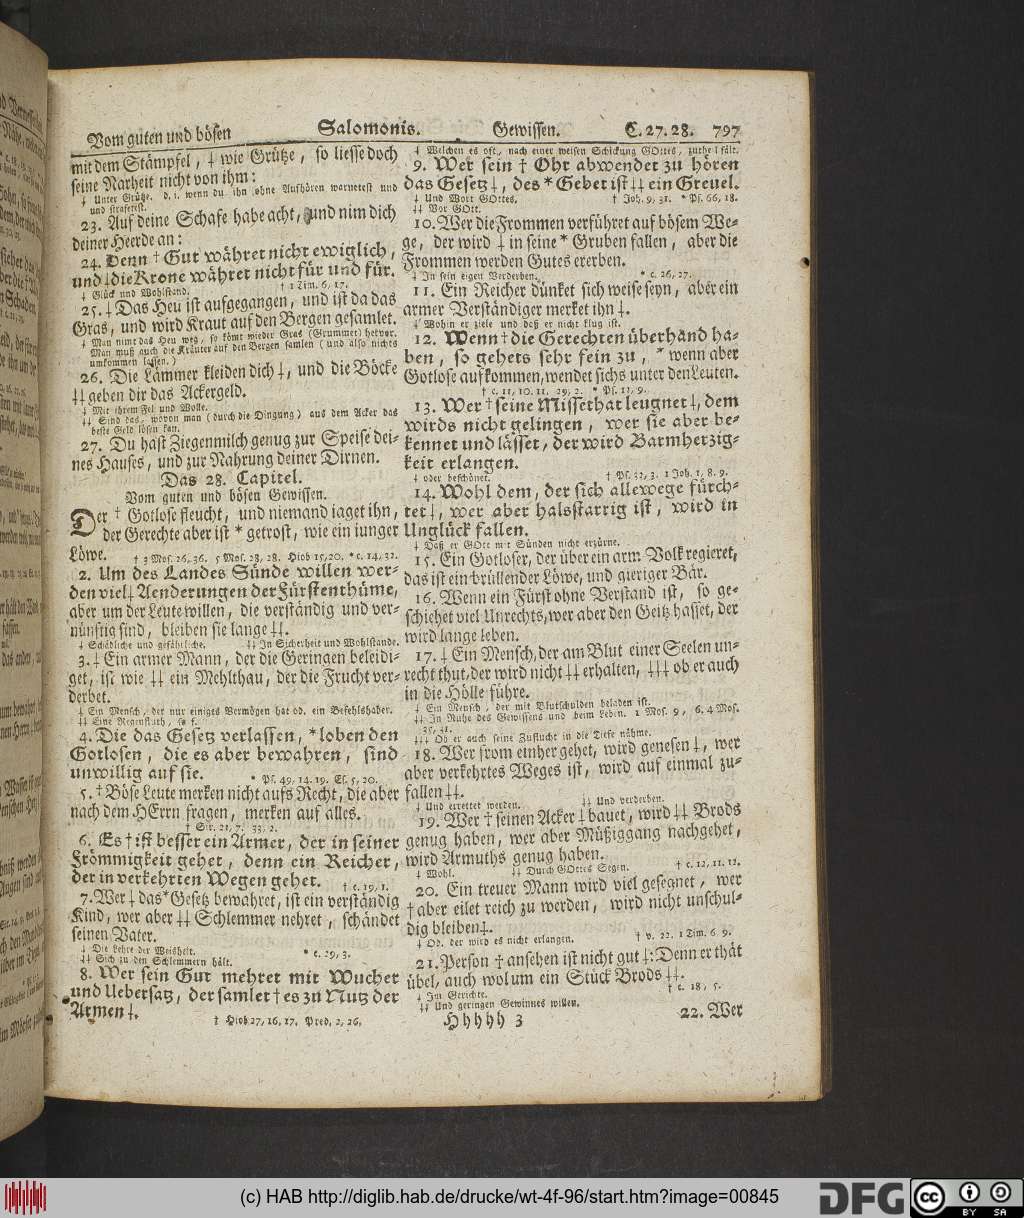 Vom guten und bösen Salomonis. Gewissen. C. 27. 28. 797
mit dem Stämpfel, ‡ wie Grütze, so liesse doch
seine Narheit nicht von ihm:
‡ Unter Grütze. d. i. wenn du ihn ohne Aufhören warnetest und
und straftest.
23. Auf deine Schafe habe acht, und nim dich
deiner Heerde an:
24. Denn † Gut währet nicht ewiglich,
und ‡ die Krone währet nicht für und für.
‡ Glück und Wohlstand. † 1 Tim. 6, 17.
25. ‡ Das Heu ist aufgegangen, und ist da das
Gras, und wird Kraut auf den Bergen gesamlet.
‡ Man nimt das Heu weg, so kömt wieder Gras (Grummet) hervor.
Man muß auch die Kräuter auf den Bergen samlen (und also nichts
umkommen lassen.)
26. Die Lämmer kleiden dich ‡, und die Böcke
‡‡ geben dir das Ackergeld.
‡ Mit ihrem Fel und Wolle.
‡‡ Sind das, wovon man (durch die Dingung) aus dem Acker das
beste Geld lösen kan.
27. Du hast Ziegenmilch genug zur Speise dei-
nes Hauses, und zur Nahrung deiner Dirnen.
Das 28. Capitel.
Vom guten und bösen Gewissen.
Der † Gotlose fleucht, und niemand jaget ihn,
der Gerechte aber ist * getrost, wie ein junger
Löwe. † 3 Mos. 26, 36. 5 Mos. 28, 28. Hiob 15, 20. * c. 14, 32.
2. Um des Landes Sünde willen wer-
den viel ‡ Aenderungen der Fürstenthüme,
aber um der Leute willen, die verständig und ver-
nünftig sind, bleiben sie lange ‡‡.
‡ Schädliche und gefährliche. ‡‡ In Sicherheit und Wohlstande.
3. ‡ Ein armer Mann, der die Geringen beleidi-
get, ist wie ‡‡ ein Mehlthau, der die Frucht ver-
derbet.
‡ Ein Mensch, der nur einiges Vermögen hat od. ein Befehlshaber.
‡‡ Eine Regenfluth, so f.
4. Die das Gesetz verlassen, * loben den
Gotlosen, die es aber bewahren, sind
unwillig auf sie. * Ps. 49, 14. 19. Es. 5, 20.
5. † Böse Leute merken nicht aufs Recht, die aber
nach dem HErrn fragen, merken auf alles.
† Sir. 21, 7. 33, 2.
6. Es † ist besser ein Armer, der in seiner
Frömmigkeit gehet, denn ein Reicher,
der in verkehrten Wegen gehet. † c. 19, 1.
7. Wer ‡ das * Gesetz bewahret, ist ein verständig
Kind, wer aber ‡‡ Schlemmer nehret, schändet
seinen Vater.
‡ Die Lehre der Weisheit. * c. 29, 3.
‡‡ Sich zu den Schlemmern hält.
8. Wer sein Gut mehret mit Wucher
und Uebersatz, der samlet † es zu Nutz der
Armen ‡.
† Hiob 27, 16. 17. Pred. 2, 26.
‡ Welchen es oft, nach einer weisen Schickung GOttes, zutheil fält.
9. Wer sein † Ohr abwendet zu hören
das Gesetz ‡, des * Gebet ist ‡‡ ein Greuel.
‡ Und Wort GOttes. † Joh. 9, 31. * Ps. 66, 18.
‡‡ Vor GOtt.
10. Wer die Frommen verführet auf bösem We-
ge, der wird ‡ in seine * Gruben fallen, aber die
Frommen werden Gutes ererben.
‡ In sein eigen Verderben. * c. 26, 27.
11. Ein Reicher dünket sich weise seyn, aber ein
armer Verständiger merket ihn ‡.
‡ Wohin er ziele und daß er nicht klug ist.
12. Wenn † die Gerechten überhand ha-
ben, so gehets sehr fein zu, * wenn aber
Gotlose aufkommen, wendet sichs unter den Leuten.
† c. 11, 10. 11. 29, 2. * Ps. 12, 9.
13. Wer † seine Missethat leugnet ‡, dem
wirds nicht gelingen, wer sie aber be-
kennet und lässet, der wird Barmherzig-
keit erlangen.
‡ oder beschönet. † Ps. 32, 3. 1 Joh. 1, 8. 9.
14. Wohl dem, der sich allewege fürch-
tet ‡, wer aber halsstarrig ist, wird in
Unglück fallen.
‡ Daß er GOtt mit Sünden nicht erzürne.
15. Ein Gotloser, der über ein arm Volk regieret,
das ist ein brüllender Löwe, und gieriger Bär.
16. Wenn ein Fürst ohne Verstand ist, so ge-
schiehet viel Unrechts, wer aber den Geitz hasset, der
wird lange leben.
17. ‡ Ein Mensch, der am Blut einer Seelen un-
recht thut, der wird nicht ‡‡ erhalten, ‡‡‡ ob er auch
in die Hölle führe.
‡ Ein Mensch, der mit Blutschulden beladen ist.
‡‡ In Ruhe des Gewissens und beim Leben. 1 Mos. 9, 6. 4 Mos.
35, 31.
‡‡‡ Ob er auch seine Zuflucht in die Tiefe nähme.
18. Wer from einher gehet, wird genesen ‡, wer
aber verkehrtes Weges ist, wird auf einmal zu-
fallen ‡‡.
‡ Und errettet werden. ‡‡ Und verderben.
19. Wer † seinen Acker ‡ bauet, wird ‡‡ Brods
genug haben, wer aber Müßiggang nachgehet,
wird Armuths genug haben.
‡ Wohl. ‡‡ Durch GOttes Segen. † c. 12, 11. 12.
20. Ein treuer Mann wird viel gesegnet, wer
† aber eilet reich zu werden, wird nicht unschul-
dig bleiben ‡.
‡ Od. der wird es nicht erlangen. † v. 22. 1 Tim. 6. 9.
21. Person † ansehen ist nicht gut ‡: Denn er thät
übel, auch wol um ein Stück Brods ‡‡.
‡ Im Gerichte. † c. 18, 5.
‡‡ Und geringen Gewinnes willen.
Hhhhh 3 22. Wer
(c) HAB http://diglib.hab.de/drucke/wt-4f-96/start.htm?image=00845
DFG
cc BY SA